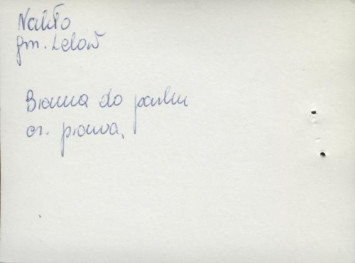 Nakło
gm. Lelów
Brama do parku
or. prawa.